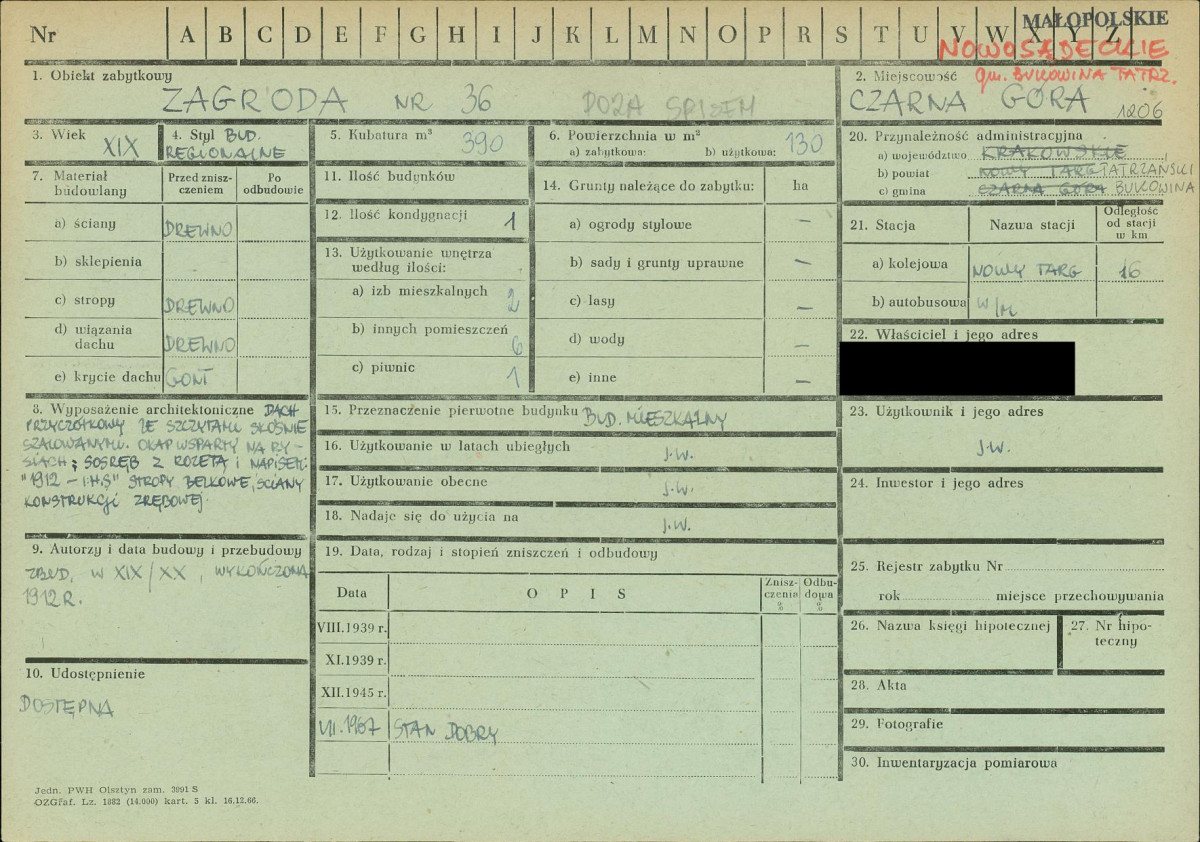 Nr A B C D E F G H I J K L M N O P R S T U V W X Y Z
MAŁOPOLSKIE
NOWOSĄDECKIE
gm. BUKOWINA TATRZ.
1. Obiekt zabytkowy
ZAGRODA NR 36 POZA SPISEM
2. Miejscowość
CZARNA GÓRA 1206
3. Wiek
XIX
4. Styl BUD.
REGIONALNE
5. Kubatura m³
390
6. Powierzchnia w m²
a) zabytkowa: b) użytkowa: 130
7. Materiał budowlany
Przed zniszczeniem
Po odbudowie
a) ściany DREWNO
b) sklepienia
c) stropy DREWNO
d) wiązania dachu DREWNO
e) krycie dachu GONT
8. Wyposażenie architektoniczne DACH
PRZYCZÓŁKOWY ZE SZCZYTAMI SKOŚNIE
SZALOWANYMI. OKAP WSPARTY NA RY-
SIACH; SOSRĘB Z ROZETĄ I NAPISEM:
"1912 – I.H.S" STROPY BELKOWE, ŚCIANY
KONSTRUKCJI ZRĘBOWEJ.
9. Autorzy i data budowy i przebudowy
ZBUD. W XIX/XX, WYKOŃCZONA
1912 R.
10. Udostępnienie
DOSTĘPNA
11. Ilość budynków
12. Ilość kondygnacji 1
13. Użytkowanie wnętrza
według ilości:
a) izb mieszkalnych 2
b) innych pomieszczeń 6
c) piwnic 1
14. Grunty należące do zabytku: ha
a) ogrody stylowe –
b) sady i grunty uprawne –
c) lasy –
d) wody –
e) inne –
15. Przeznaczenie pierwotne budynku BUD. MIESZKALNY
16. Użytkowanie w latach ubiegłych J.W.
17. Użytkowanie obecne J.W.
18. Nadaje się do użycia na J.W.
19. Data, rodzaj i stopień zniszczeń i odbudowy
Data OPIS Zniszczenia % Odbudowa %
VIII.1939 r.
XI.1939 r.
XII.1945 r.
VII.1967 STAN DOBRY
20. Przynależność administracyjna
a) województwo KRAKOWSKIE
b) powiat NOWY TARG TATRZAŃSKI
c) gmina CZARNA GÓRA BUKOWINA
21. Stacja Nazwa stacji Odległość od stacji w km
a) kolejowa NOWY TARG 16
b) autobusowa W/M
22. Właściciel i jego adres
23. Użytkownik i jego adres
J.W.
24. Inwestor i jego adres
25. Rejestr zabytku Nr
rok miejsce przechowywania
26. Nazwa księgi hipotecznej
27. Nr hipo-
teczny
28. Akta
29. Fotografie
30. Inwentaryzacja pomiarowa
Jedn. PWH Olsztyn zam. 3991 S
OZGraf. Lz. 1882 (14.000) kart. 5 kl. 16.12.66.